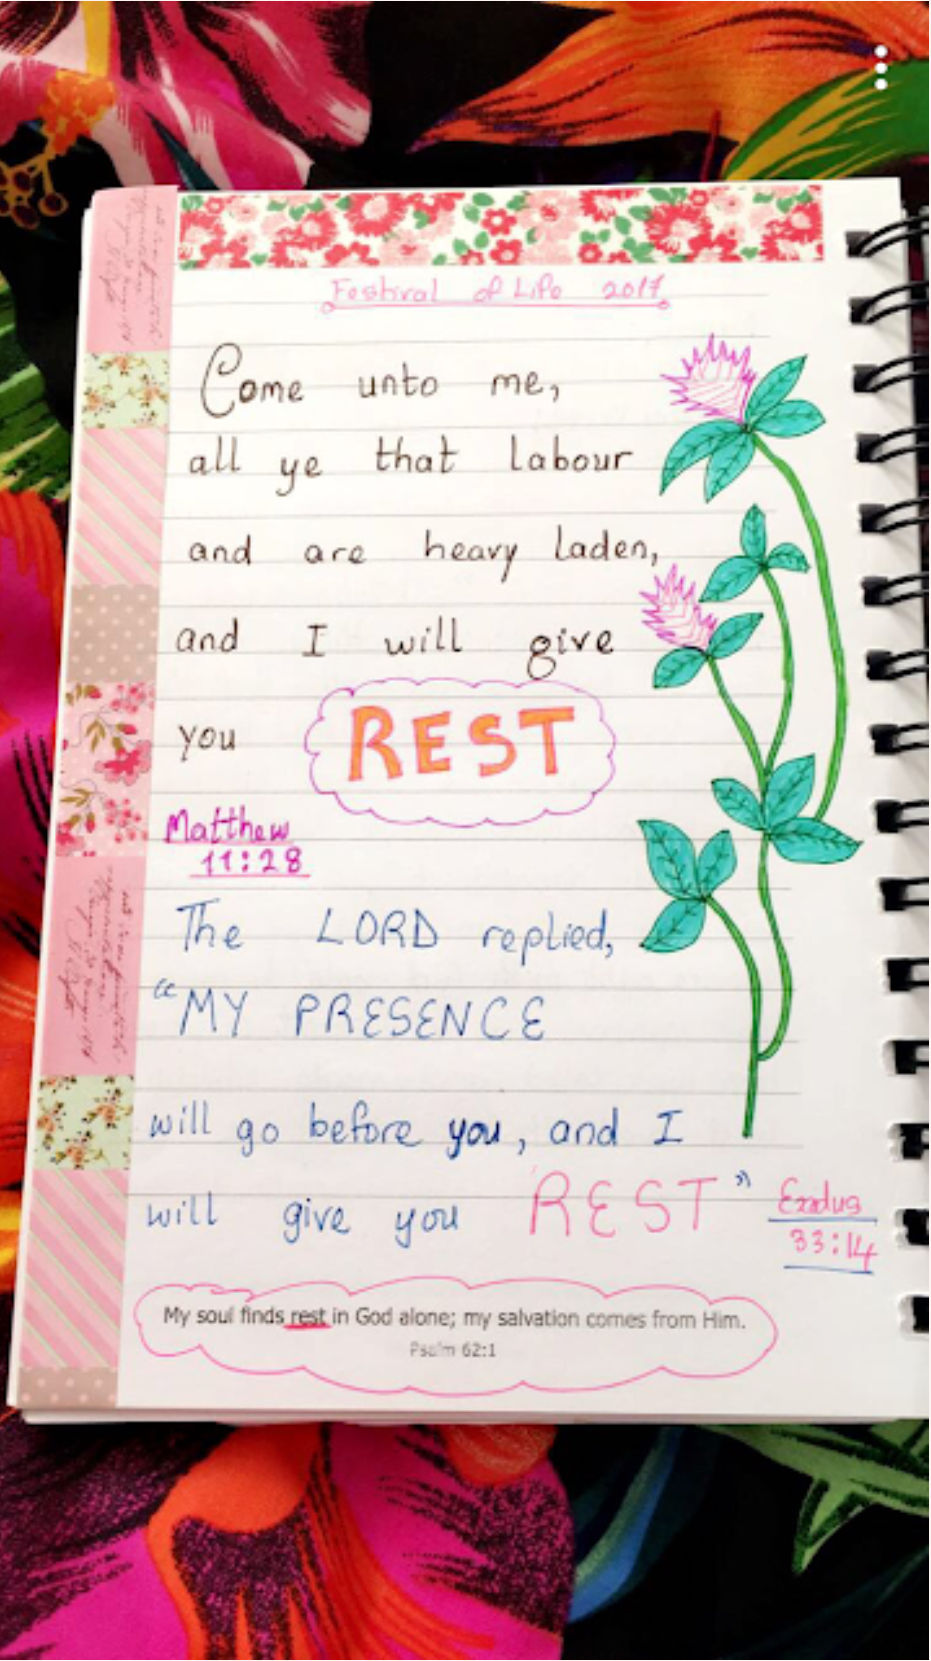 Festival of Life 2017
Come unto me,
all ye that labour
and are heavy laden,
and I will give
you REST
Matthew
11:28
The LORD replied,
"MY PRESENCE
will go before you, and I
will give you REST"
Exodus
33:14
My soul finds rest in God alone; my salvation comes from Him.
Psalm 62:1